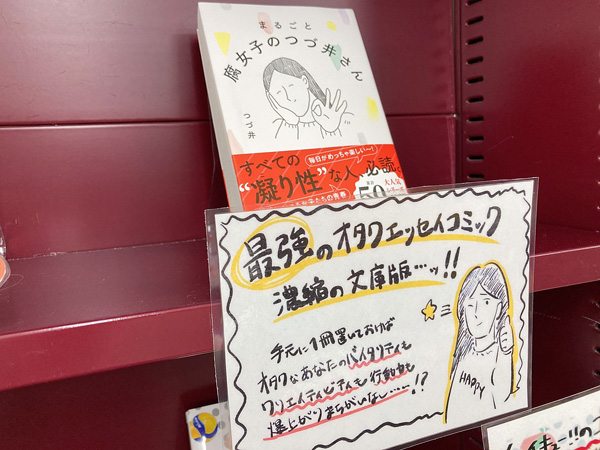 まるごと
腐女子のつづ井さん
つづ井
毎日がめっちゃ楽しい〜!
すべての
“凝り性”な人、必読
大人気
50
最強のオタクエッセイコミック
濃縮の文庫版…ッ!!
手元に1冊置いておけば
オタクなあなたのバイタリティも
クリエイティビティも行動力も
爆上がりまちがいなし……!?
HAPPY